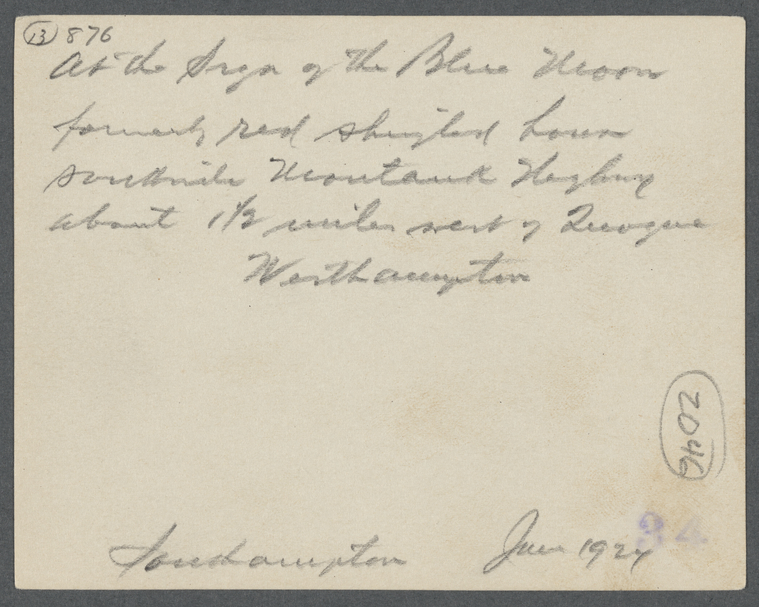 13 876
At the Sign of the Blue Moon
formerly red shingled house
southside Montauk Highway
about 1 1/2 miles west of Quogue
Westhampton
2046
34
Southampton June 1924